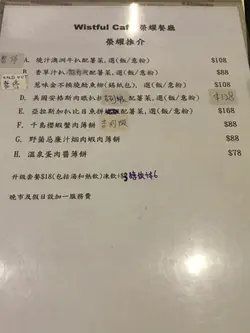 Wistful Café 榮耀餐廳
榮耀推介
暫停 A. 燒汁澳洲牛扒配薯菜,週(飯/意粉) $108
B. 香草汁扒配薯菜,週(飯/意粉) $88
暫停 C. 思味金不換燒鯰魚餅(錫紙包), 週(飯/意粉) $108
D. 美國安格斯肉眼扒配薯菜,週(飯/意粉) $128
E. 亞拉斯加比目魚配薯菜,週(飯/意粉) $88
F. 千島櫻蝦蟹肉薄餅 $88
G. 野菌忌廉汁烟肉蝦肉薄餅 $88
H. 溫泉蛋肉醬薄餅 $78
升級套餐$18(包括湯和熱飲)凍飲+$ 特飲+$6
晚市及假日設加一服務費